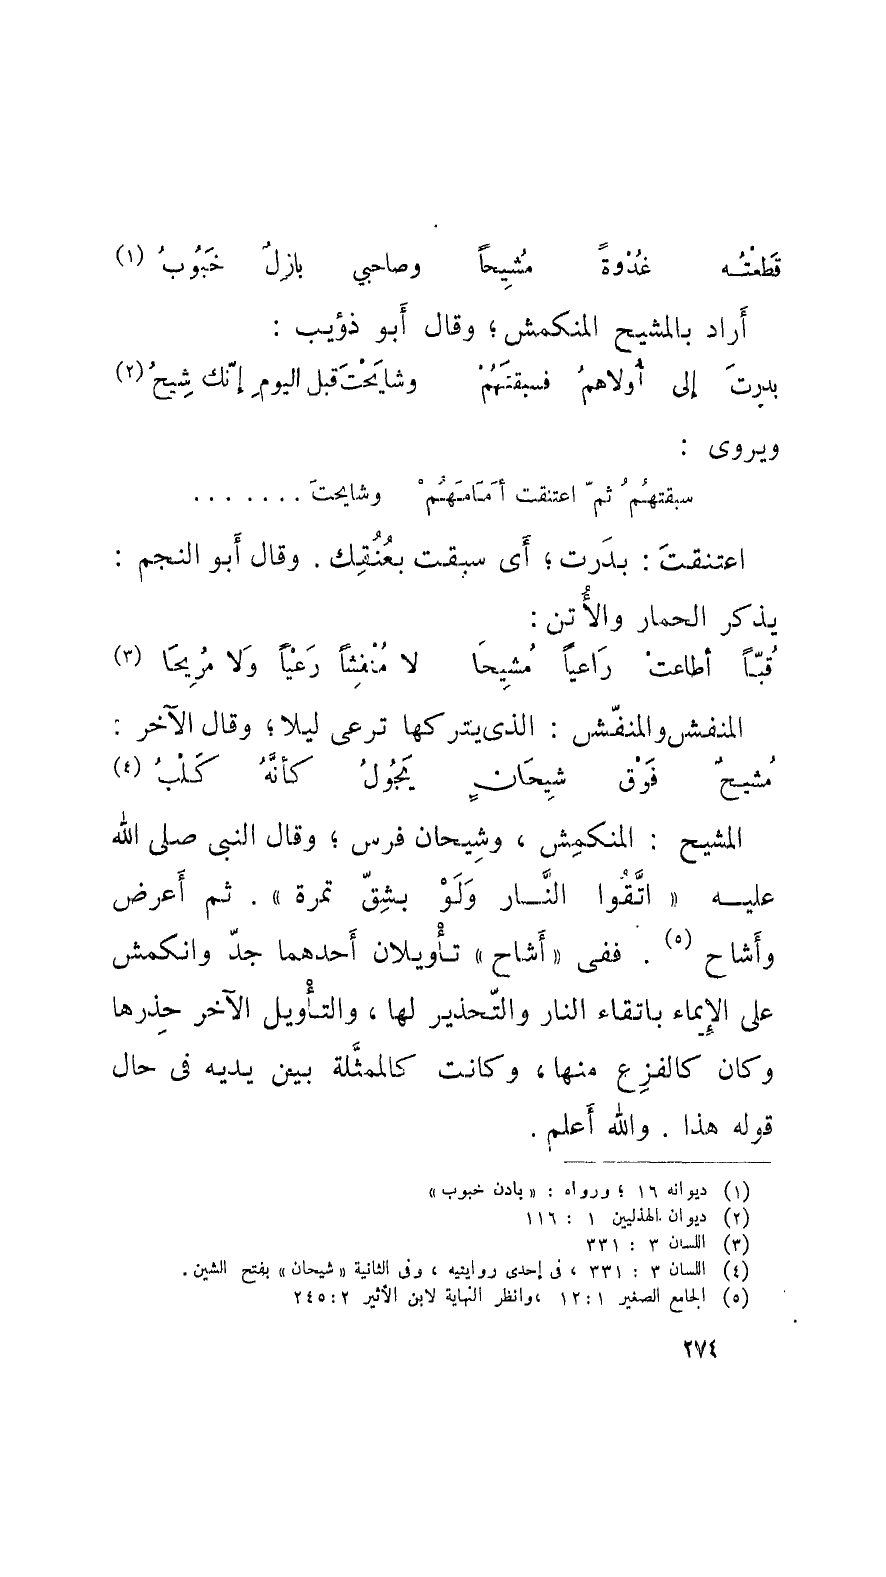 قَطَعْتُـه غُدْوةً مُشِيحاً وصاحبي بازِلٌ خَبُوبُ (١)
أَراد بالمشيح المنكمش؛ وقال أَبو ذؤيب :
بدرتَ إلى أُولاهمُ فسبقتَهُمْ وشايَحْتَ قبل اليومِ إنّك شِيحُ (٢)
ويروى :
سبقتهُمُ ثمّ اعتنقت أمَامَهُمْ وشايحتَ . . . . . . .
اعتنقتَ : بدَرت؛ أَى سبقت بعُنُقِك . وقال أَبو النجم :
يذكر الحمار والأُتن :
قُبّاً أطاعتْ رَاعياً مُشيحَا لا مُنْفِشاً رَعْياً وَلا مُرِيحَا (٣)
المنفش والمنفّش : الذى يتركها ترعى ليلا؛ وقال الآخر :
مُشيحٌ فَوْق شيِحَانٍ يَجُولُ كأنَّهُ كَلْبُ (٤)
المشيح : المنكمِش ، وشِيحان فرس ؛ وقال النبى صلى الله
عليـه « اتَّقُوا النَّـار وَلَوْ بشِقّ تمرة » . ثم أَعرض
وأَشاح (٥) . ففى « أَشاح » تأْويلان أَحدهما جدّ وانكمش
على الإِيماء باتقاء النار والتّحذير لها ، والتأْويل الآخر حذِرها
وكان كالفزِع منها ، وكانت كالممثَّلة بين يديه فى حال
قوله هذا . والله أَعلم .
(١) ديوانه ١٦ ؛ ورواه : « بادن خبوب »
(٢) ديوان الهذليين ١ : ١١٦
(٣) اللسان ٣ : ٣٣١
(٤) اللسان ٣ : ٣٣١ ، فى إحدى روايتيه ، وفى الثانية « شيحان » بفتح الشين .
(٥) الجامع الصغير ١ : ١٢ ، وانظر النهاية لابن الأثير ٢ : ٢٤٥
٢٧٤